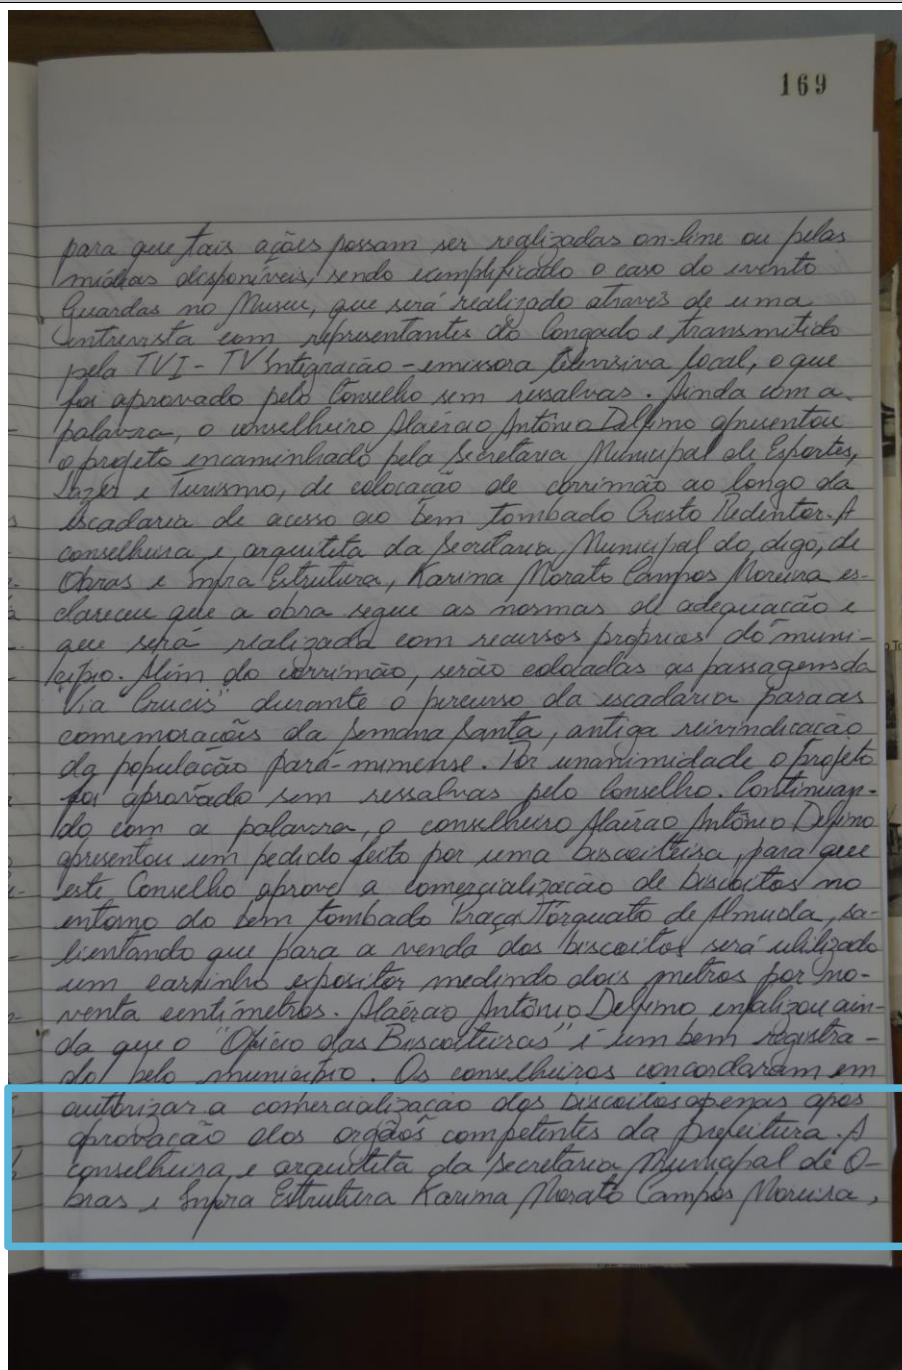 169
para que tais ações possam ser realizadas on-line ou pelas
mídias disponíveis, sendo exemplificado o caso do evento
Guardas no Museu, que será realizado através de uma
entrevista com representantes do Congado e transmitido
pela TVI - TV Integração - emissora televisiva local, o que
foi aprovado pelo Conselho sem ressalvas. Ainda com a
palavra, o conselheiro Alaércio Antônio Delfino apresentou
o projeto encaminhado pela Secretaria Municipal de Esportes,
Lazer e Turismo, de colocação de corrimão ao longo da
escadaria de acesso ao bem tombado Cristo Redentor. A
conselheira e arquiteta da Secretaria Municipal do, digo, de
Obras e Infra Estrutura, Karina Morato Campos Moreira es-
clareceu que a obra segue as normas de adequação e
que será realizada com recursos próprios do muni-
cípio. Além do corrimão, serão colocadas as passagens da
"Via Crucis" durante o percurso da escadaria para as
comemorações da Semana Santa, antiga reivindicação
da população pará-minense. Por unanimidade o projeto
foi aprovado sem ressalvas pelo Conselho. Continuan-
do com a palavra, o conselheiro Alaércio Antônio Delfino
apresentou um pedido feito por uma biscoiteira, para que
este Conselho aprove a comercialização de biscoitos no
entorno do bem tombado Praça Torquato de Almeida, sa-
lientando que para a venda dos biscoitos será utilizado
um carrinho expositor medindo dois metros por no-
venta centímetros. Alaércio Antônio Delfino enfatizou ain-
da que o "Ofício das Biscoiteiras" é um bem registra-
do pelo município. Os conselheiros concordaram em
autorizar a comercialização dos biscoitos apenas após
aprovação dos orgãos competentes da prefeitura. A
conselheira e arquiteta da Secretaria Municipal de O-
bras e Infra Estrutura Karina Morato Campos Moreira,